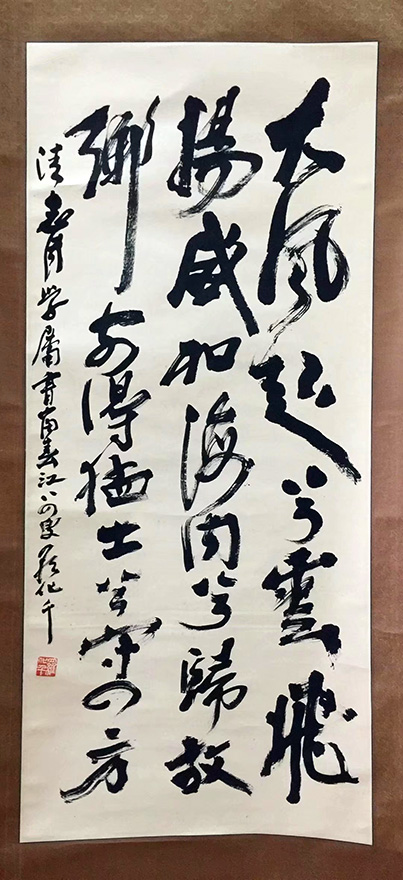 大風起兮雲飛
揚威加海内兮歸故
鄉安得猛士兮守四方
學屬書富春江